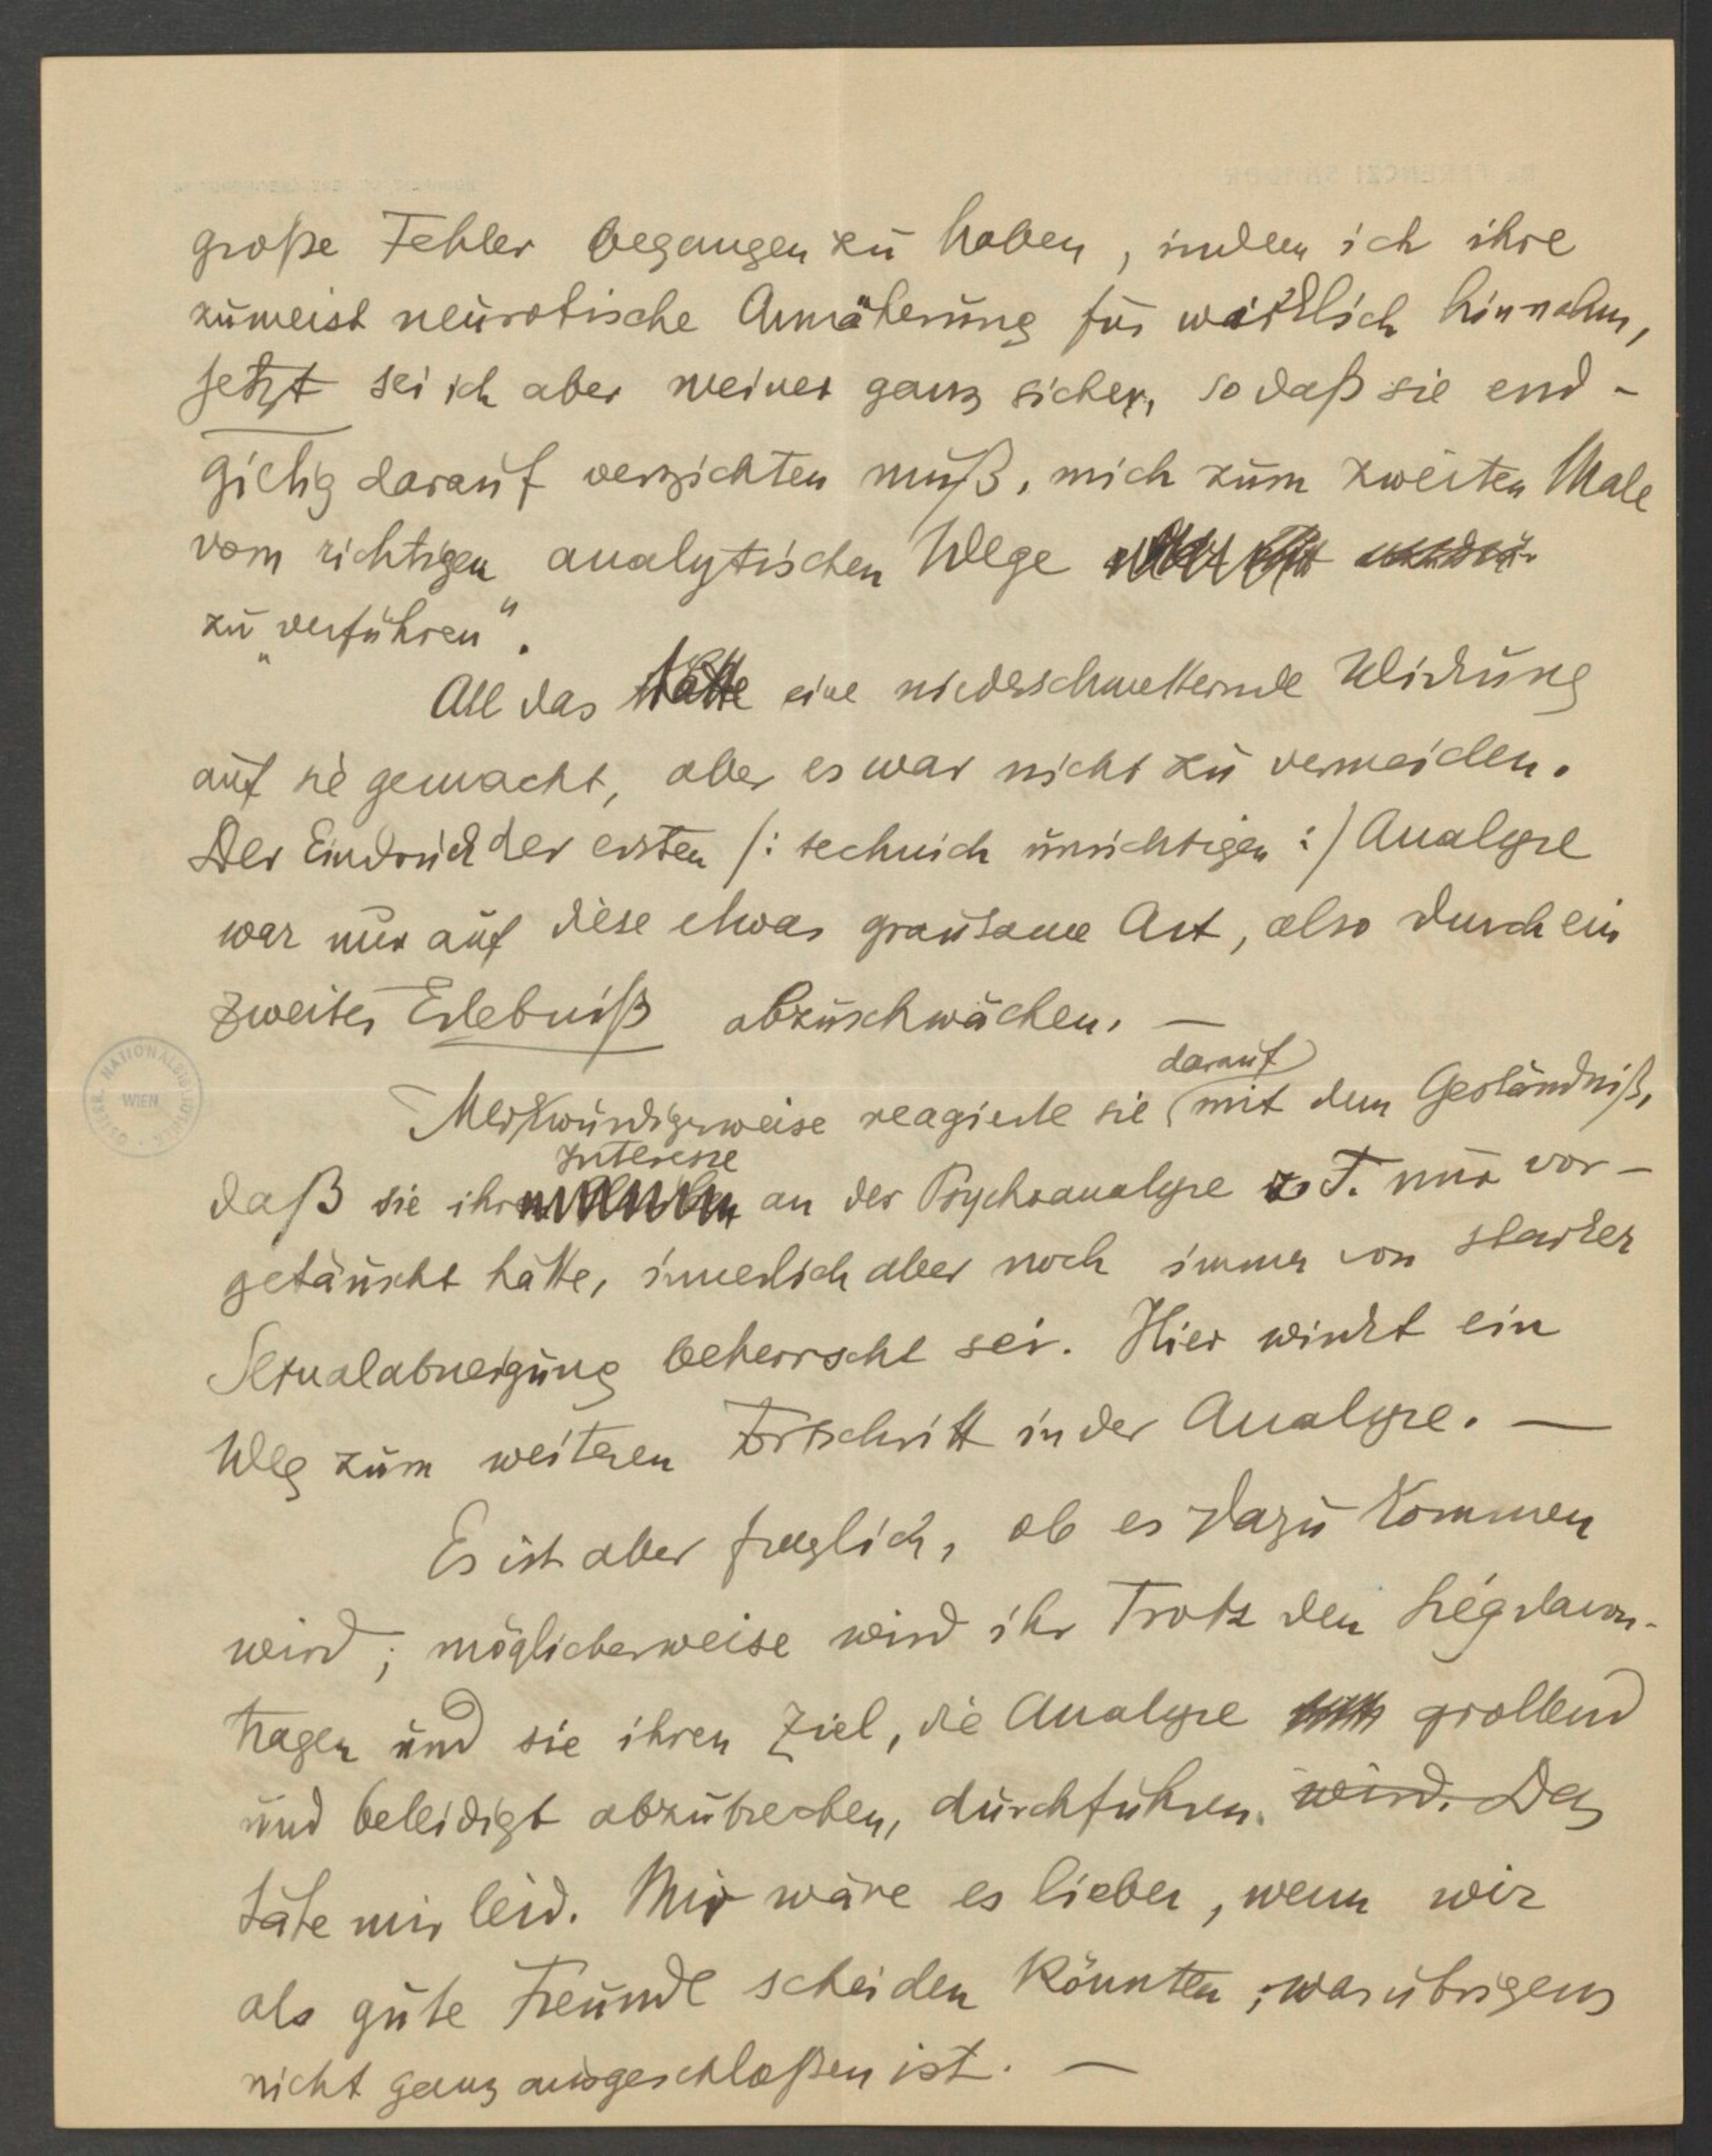 große Fehler begangen zu haben, indem ich ihre
zumeist neurotische Annäherung für wirklich hinnahm,
jetzt sei ich aber meiner ganz sicher, so daß sie end-
giltig darauf verzichten muß, mich zum zweiten Male
vom richtigen analytischen Wege
zu „verführen“.
All das hatte eine niederschmetternde Wirkung
auf sie gemacht, aber es war nicht zu vermeiden.
Der Eindruck der ersten /: technich unrichtigen :/ Analyse
war nur auf diese etwas grausame Art, also durch ein
zweites Erlebniß abzuschwächen. —
darauf
Merkwürdigerweise reagierte sie mit dem Geständniß,
Interesse
daß sie ihr an der Psychoanalyse z. T. nur vor-
getäuscht hätte, innerlich aber noch immer von starker
Sexualabneigung beherrscht sei. Hier winkt ein
Weg zum weiteren Fortschritt in der Analyse. —
Es ist aber fraglich, ob es dazu kommen
wird; möglicherweise wird ihr Trotz den Sieg davon-
tragen und sie ihren Ziel, die Analyse grollend
und beleidigt abzubrechen, durchführen. wird. Das
täte mir leid. Mir wäre es lieber, wenn wir
als gute Freunde scheiden könnten; was übrigens
nicht ganz ausgeschloßen ist. —
ÖSTERR. NATIONALBIBLIOTHEK
WIEN
Dr. FERENCZI SÁNDOR